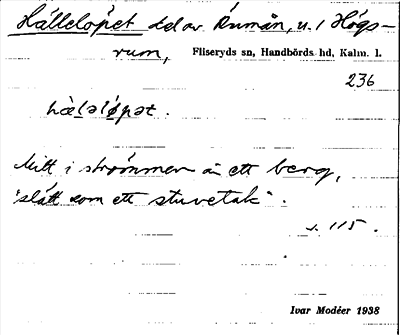 Hälleløpet del av Åumån, u. / Högs-
rum, Fliseryds sn, Handbörds hd, Kalm. l.
236
hæ̀ləlø̀pət.
Mitt i strömmen är ett berg,
"slätt som ett stuvetak".
s. 115.
Ivar Modéer 1938